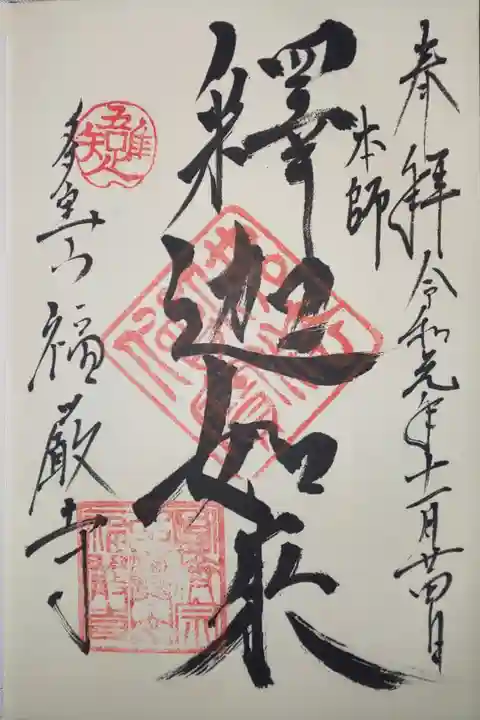 奉拝 令和元年十一月廿四日
本師
釋迦如来
福厳寺
吾唯足知